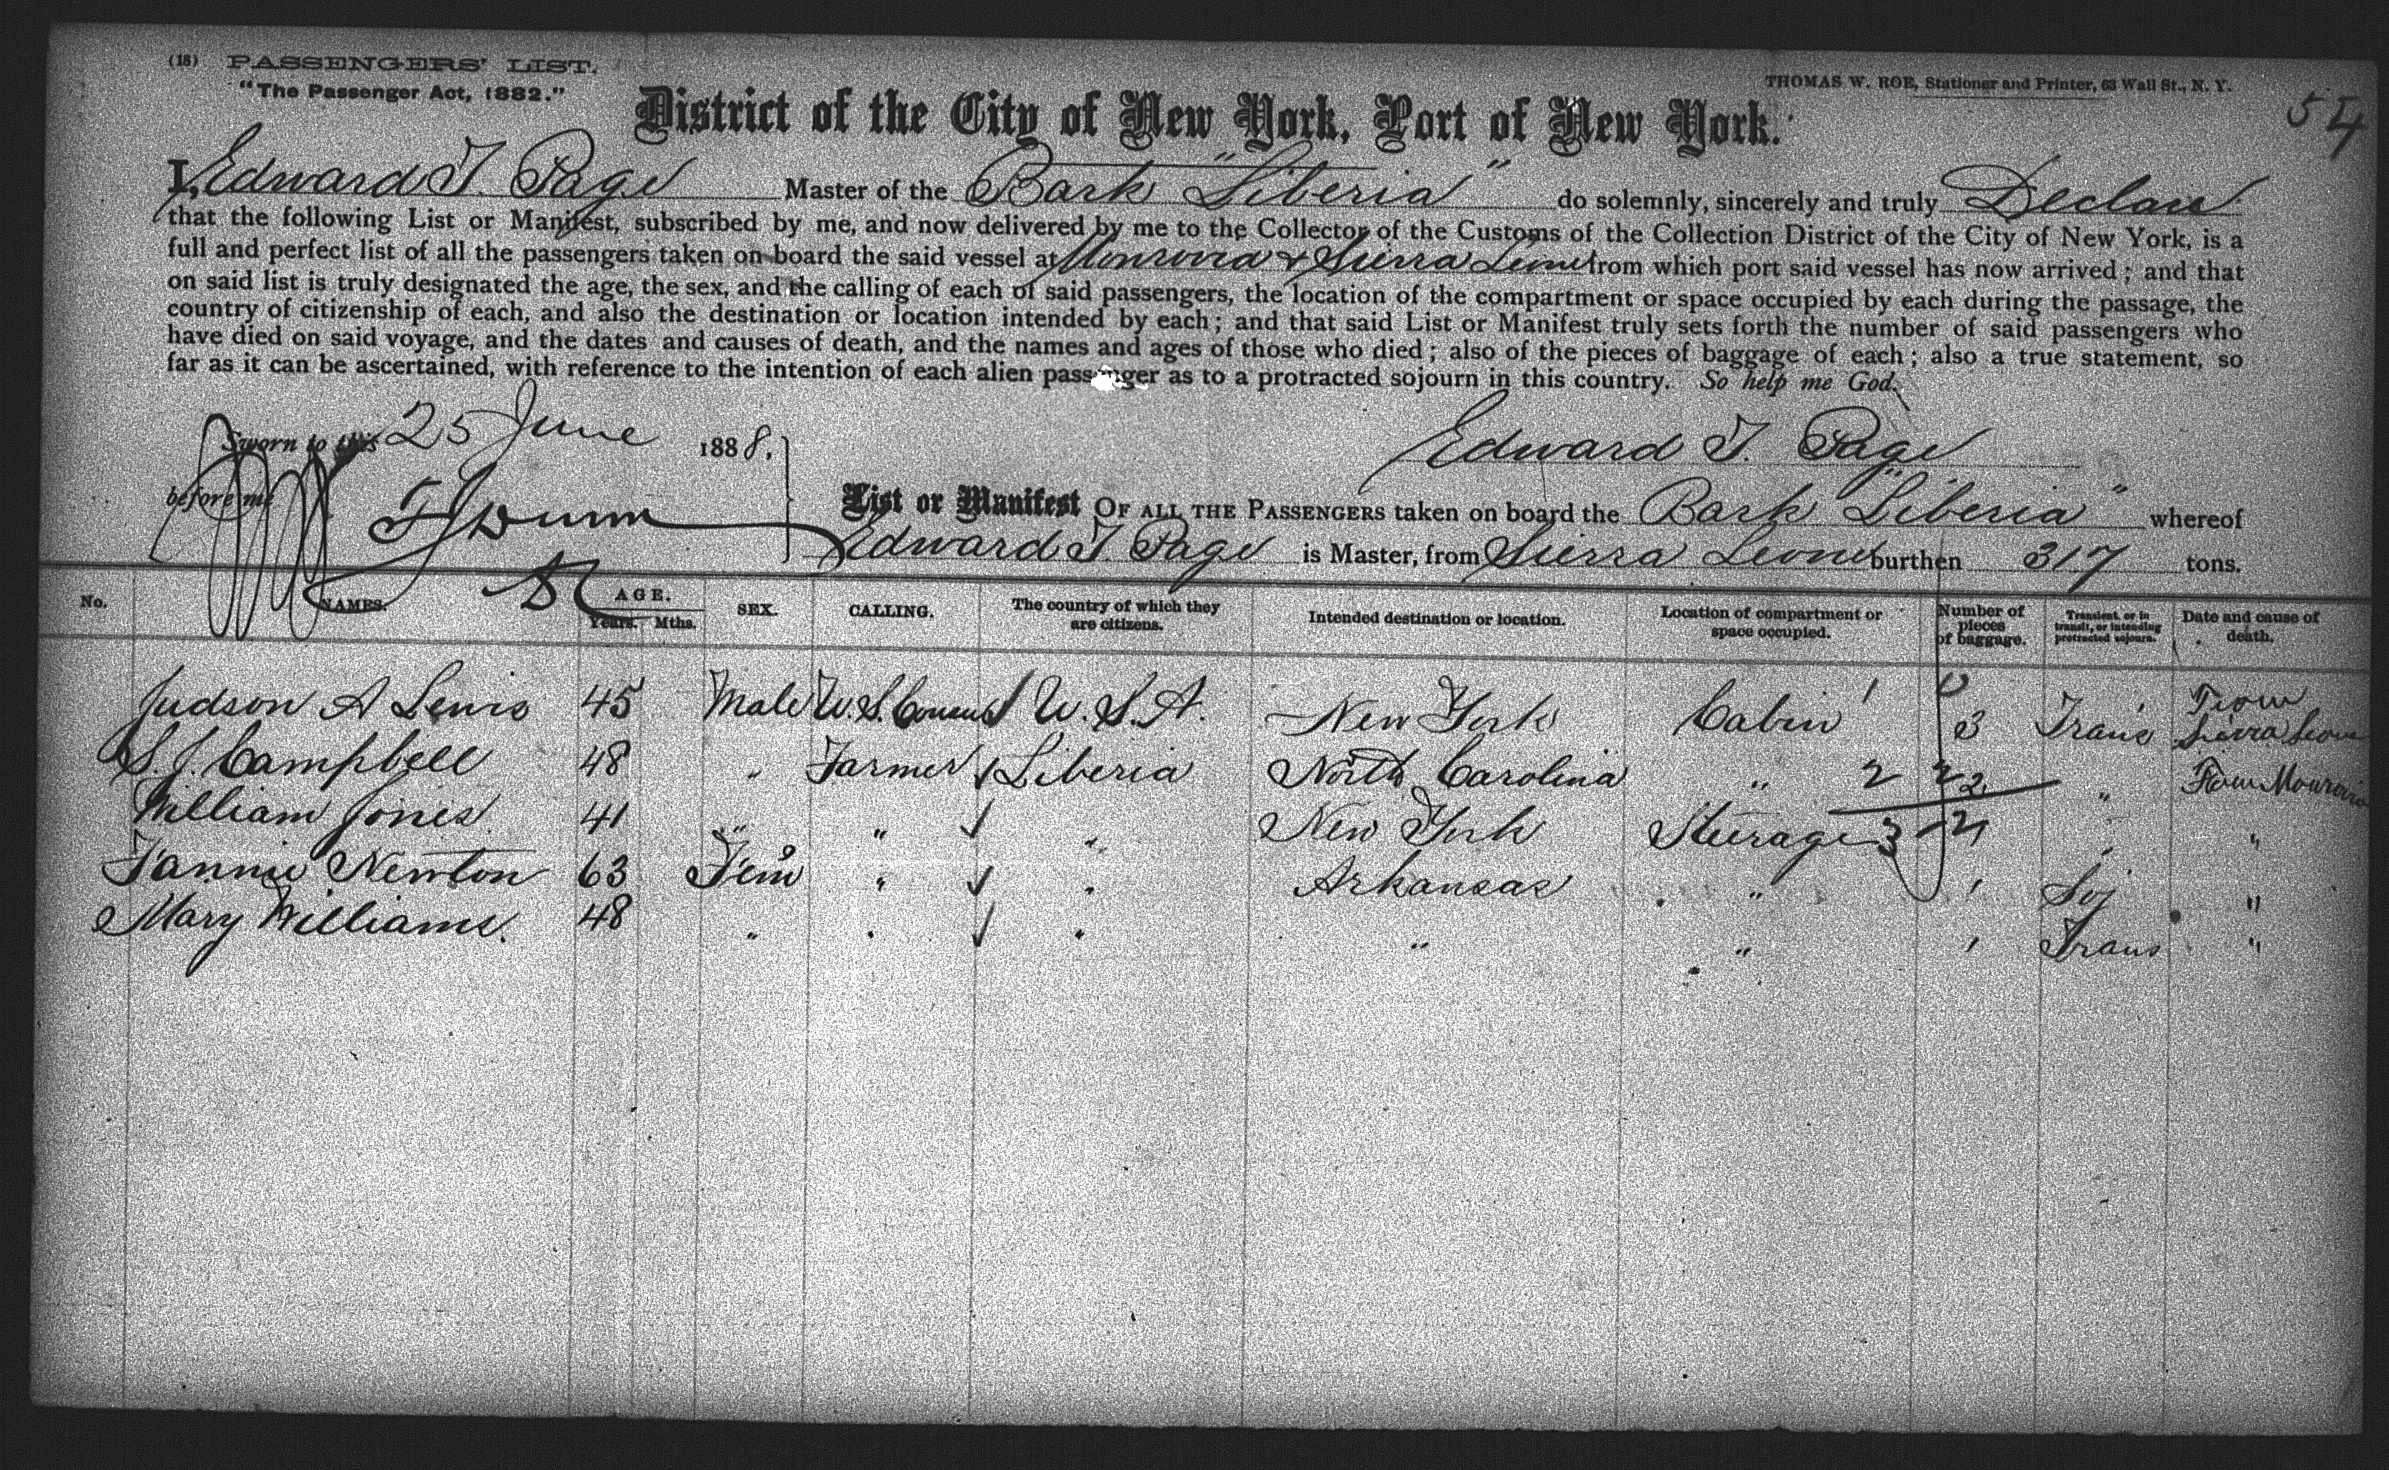 (18) PASSENGERS' LIST.
"The Passenger Act, 1882."
THOMAS W. ROE, Stationer and Printer, 63 Wall St., N. Y.
54
District of the City of New York, Port of New York.
I, Edward T. Page Master of the Bark "Liberia" do solemnly, sincerely and truly Declare
that the following List or Manifest, subscribed by me, and now delivered by me to the Collector of the Customs of the Collection District of the City of New York, is a
full and perfect list of all the passengers taken on board the said vessel at Monrovia & Sierra Leone from which port said vessel has now arrived; and that
on said list is truly designated the age, the sex, and the calling of each of said passengers, the location of the compartment or space occupied by each during the passage, the
country of citizenship of each, and also the destination or location intended by each; and that said List or Manifest truly sets forth the number of said passengers who
have died on said voyage, and the dates and causes of death, and the names and ages of those who died; also of the pieces of baggage of each; also a true statement, so
far as it can be ascertained, with reference to the intention of each alien passenger as to a protracted sojourn in this country. So help me God.
Sworn to this 25 June 1888,
Edward T. Page
before me
List or Manifest OF ALL THE PASSENGERS taken on board the Bark "Liberia" whereof
Edward T. Page is Master, from Sierra Leone burthen 317 tons.
No. NAMES. AGE. Years. Mths. SEX. CALLING. The country of which they are citizens. Intended destination or location. Location of compartment or space occupied. Number of pieces of baggage. Transient, or in transit, or intending protracted sojourn. Date and cause of death.
Judson A Lewis 45 Male U.S. Consul U.S.A. New York Cabin 1 3 Trans From Sierra Leone
S. J. Campbell 48 " Farmer Liberia North Carolina " 2 2 2 " From Monrovia
William Jones 41 " " " New York Steerage 3 2 " "
Fannie Newton 63 Fem " " Arkansas " 1 Soj "
Mary Williams. 48 " " " " " 1 Trans "